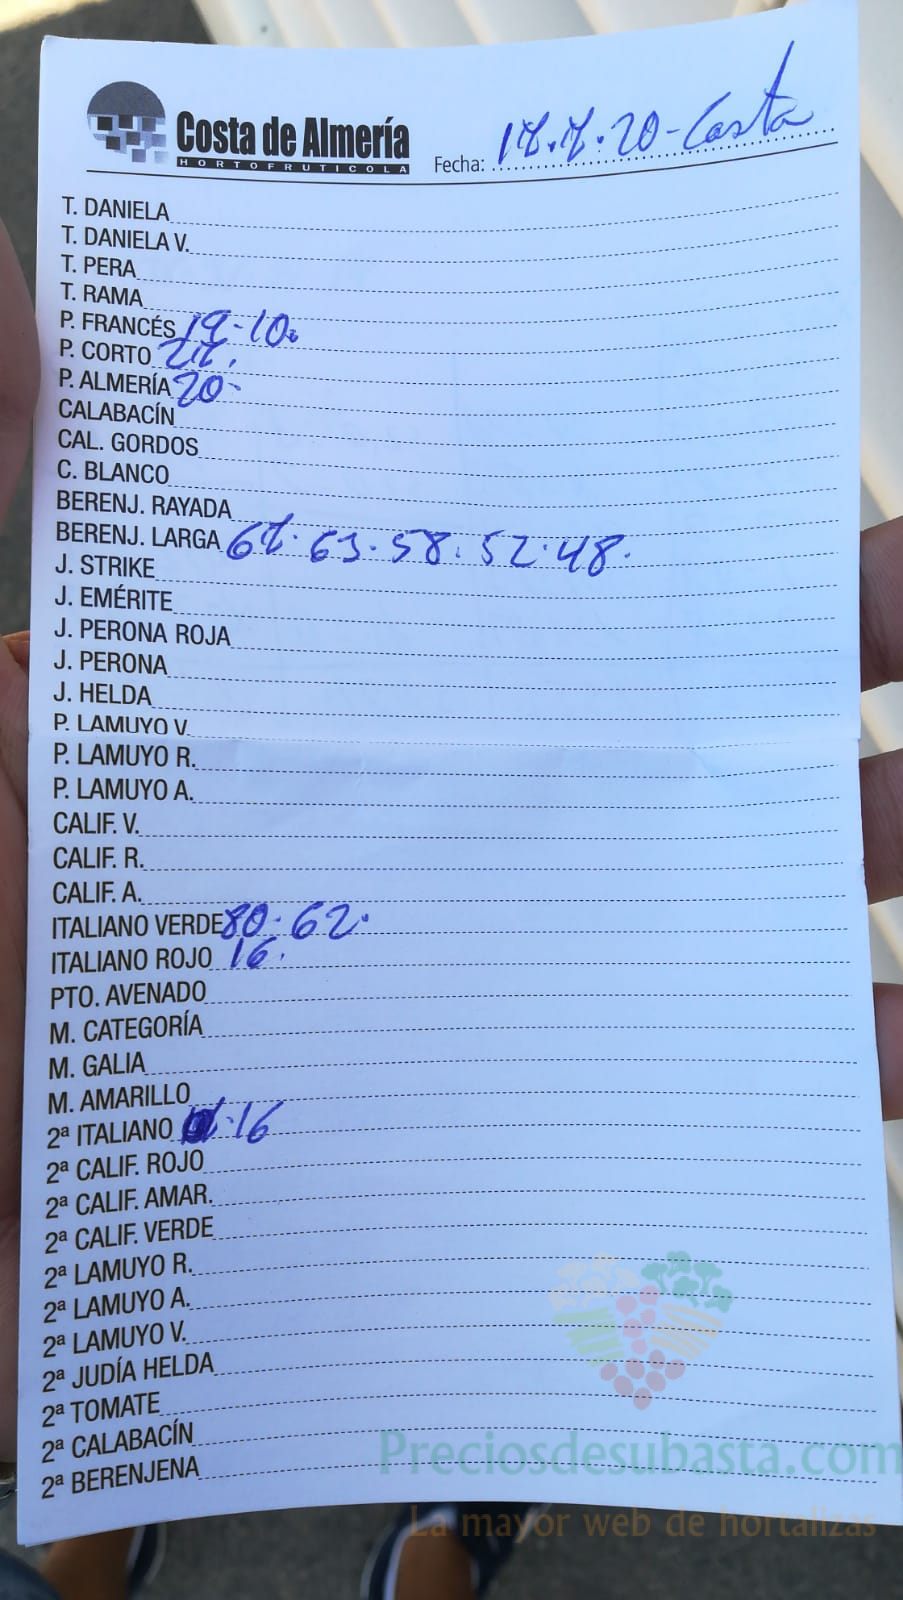 Costa de Almería
HORTOFRUTICOLA
Fecha: 17.7.20-Costa
T. DANIELA
T. DANIELA V.
T. PERA
T. RAMA
P. FRANCÉS 19-10.
P. CORTO 27.
P. ALMERÍA 20-
CALABACÍN
CAL. GORDOS
C. BLANCO
BERENJ. RAYADA
BERENJ. LARGA 67. 63. 58. 52. 48.
J. STRIKE
J. EMÉRITE
J. PERONA ROJA
J. PERONA
J. HELDA
P. LAMUYO V.
P. LAMUYO R.
P. LAMUYO A.
CALIF. V.
CALIF. R.
CALIF. A.
ITALIANO VERDE 80. 62.
ITALIANO ROJO 16.
PTO. AVENADO
M. CATEGORÍA
M. GALIA
M. AMARILLO
2ª ITALIANO 16
2ª CALIF. ROJO
2ª CALIF. AMAR.
2ª CALIF. VERDE
2ª LAMUYO R.
2ª LAMUYO A.
2ª LAMUYO V.
2ª JUDÍA HELDA
2ª TOMATE
2ª CALABACÍN
2ª BERENJENA
Preciosdesubasta.com
La mayor web de hortalizas